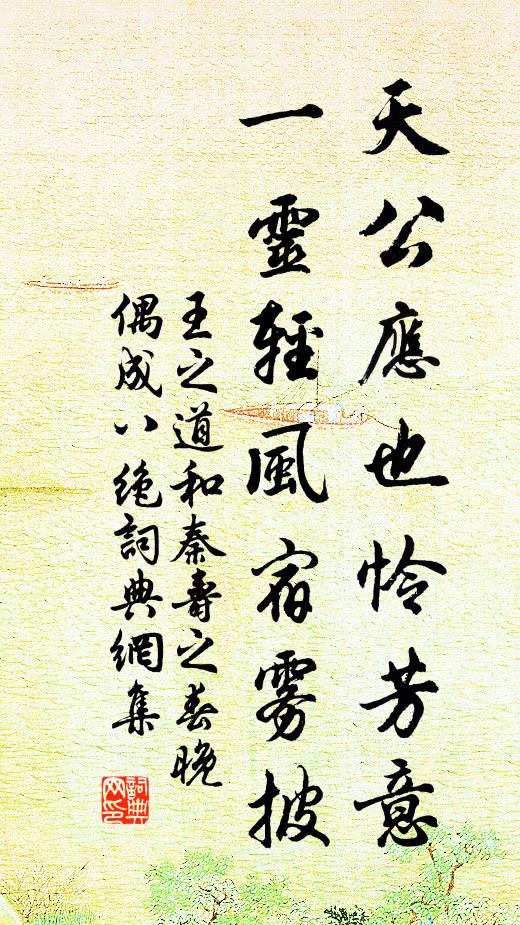 天公應也怜芳意
一靈輕風宿霧披
王之道和秦壽之春晚
偶成八绝詞典網集
詞典网印